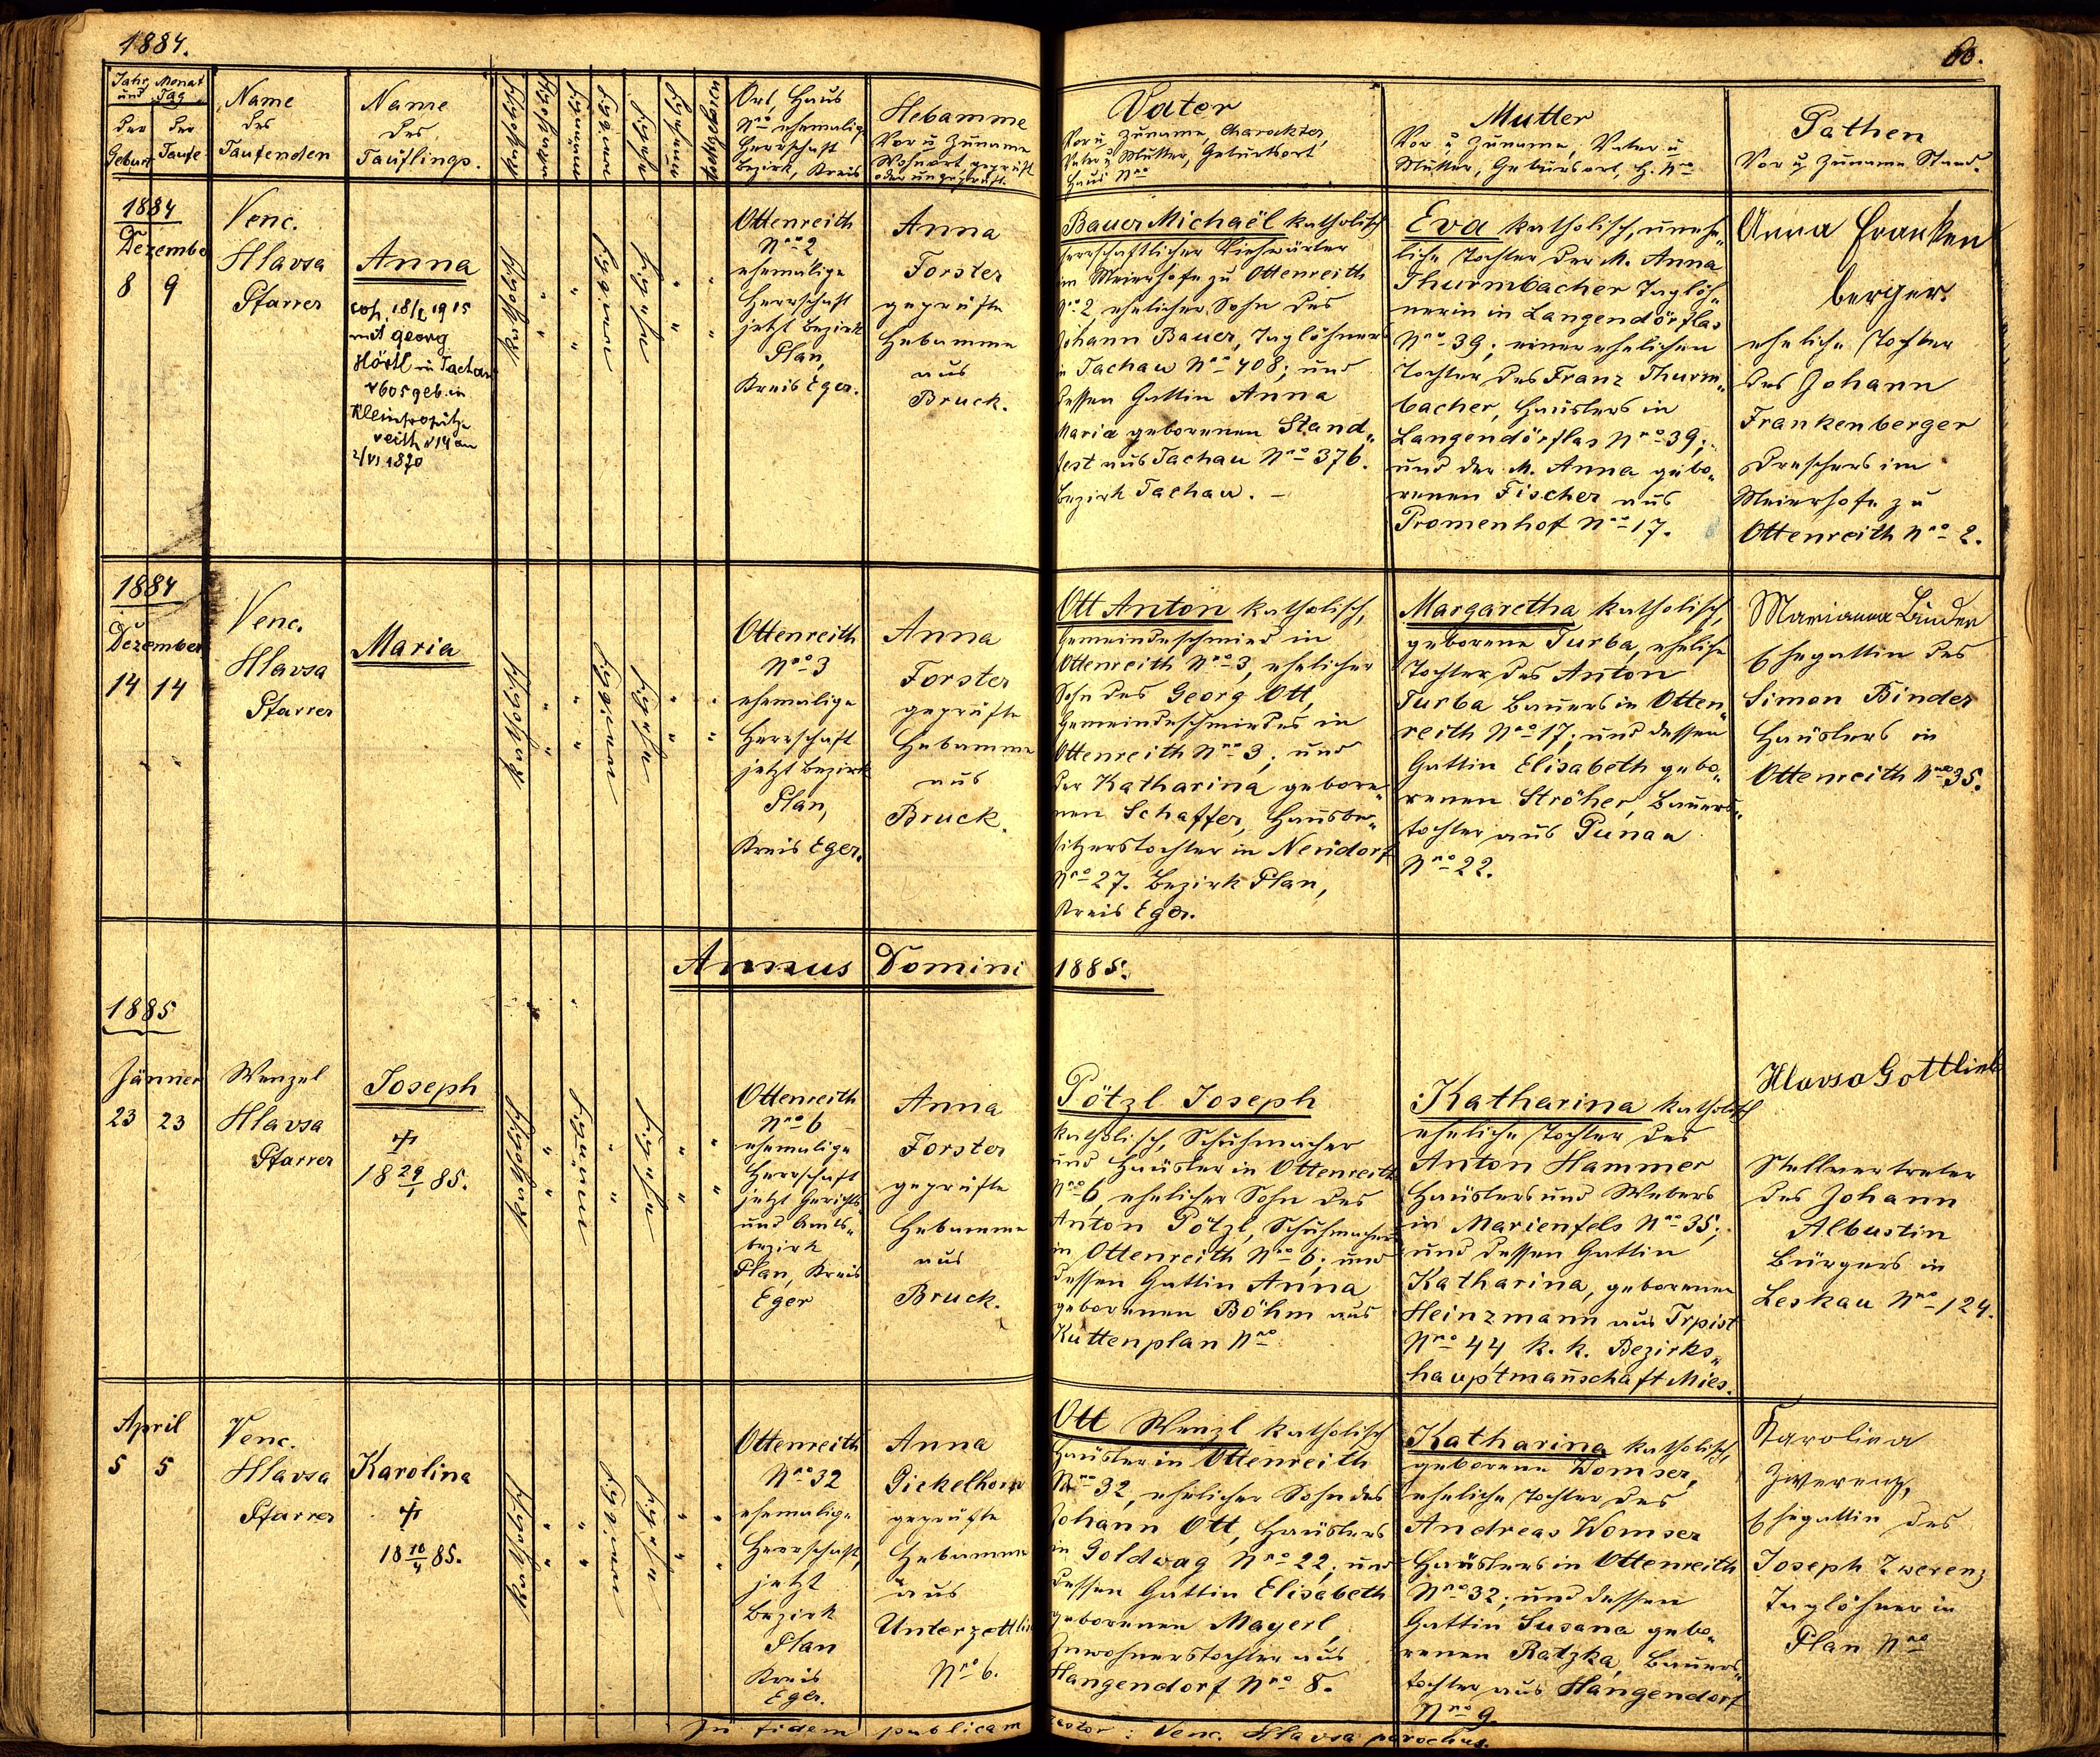 1884.
60.
Jahr und Monat Tag
der Geburt
der Taufe
Name
des
Taufenden
Name
des
Täuflings.
katholisch
Ort, Haus
Nro ehemalige
Herrschaft
Bezirk, Kreis
Hebamme
Vor u Zuname
Wohnort, geprüft
oder ungeprüft.
Vater
Vor u Zuname, Charakter,
Vater u Mutter, Geburtsort
Haus Nro
Mutter
Vor u Zuname, Vater u
Mutter, Geburtsort, H. Nro
Pathen
Vor u Zuname Stand.
1884
Dezember
8 9
Venc.
Hlavsa
Pfarrer
Anna
cop. 18/1 1915
mit Georg
Hörtl in Tachau
geb. in
reith N14 am
2/VI 1870
katholisch
Ottenreith
Nro 2
ehemalige
Herrschaft
jetzt Bezirk
Plan,
Kreis Eger.
Anna
Forster
geprüfte
Hebamme
aus
Bruck.
Bauer Michaël katholisch
herrschaftlicher Viehwärter
im Meierhofe zu Ottenreith
Nro 2, ehelicher Sohn des
Johann Bauer, Taglöhners
in Tachau Nro 408; und
dessen Gattin Anna
Maria geborenen Stand„
fest aus Tachau Nro 376.
Bezirk Tachau. –
Eva katholisch, unehe„
liche Tochter der M. Anna
Thurmbacher Taglöh„
nerin in Langendörflas
Nro 39; einer ehelichen
Tochter des Franz Thurm„
bacher, Häuslers in
Langendörflas Nro 39;
und der M. Anna gebo„
renen Fischer aus
Promenhof Nro 17.
Anna Franken
berger.
eheliche Tochter
des Johann
Frankenberger
Dreschers im
Meierhofe zu
Ottenreith Nro 2.
1884
Dezember
14 14
Venc.
Hlavsa
Pfarrer
Maria
katholisch
Ottenreith
Nro 3
ehemalige
Herrschaft
jetzt Bezirk
Plan,
Kreis Eger.
Anna
Forster
geprüfte
Hebamme
aus
Bruck.
Ott Anton katholisch,
Gemeindeschmied in
Ottenreith Nro 3, ehelicher
Sohn des Georg Ott,
Gemeindeschmiedes in
Ottenreith Nro 3; und
der Katharina gebore„
nen Schaffer, Hausbe„
sitzerstochter in Neudorf
Nro 27. Bezirk Plan,
Kreis Eger.
Margaretha katholisch,
geborene Turba, eheliche
Tochter des Anton
Turba Bauers in Otten„
reith Nro 17; und dessen
Gattin Elisabeth gebo„
renen Ströher, Bauers„
tochter aus Punau
Nro 22.
Marianna Binder
Ehegattin des
Simon Binder
Häuslers in
Ottenreith Nro 35.
Annus Domini 1885.
1885
Jänner
23 23
Wenzel
Hlavsa
Pfarrer
Joseph
18 29/1 85.
katholisch
Ottenreith
Nro 6
ehemalige
Herrschaft
jetzt Gerichts„
und Amts„
bezirk
Plan, Kreis
Eger
Anna
Forster
geprüfte
Hebamme
aus
Bruck.
Pötzl Joseph
katholisch, Schuhmacher
und Häusler in Ottenreith
Nro 6, ehelicher Sohn des
Anton Pötzl, Schuhmachers
in Ottenreith Nro 6; und
dessen Gattin Anna
geborenen Böhm aus
Kuttenplan Nro
Katharina katholisch
eheliche Tochter des
Anton Hammer
Häuslers und Webers
in Marienfels Nro 35;
und dessen Gattin
Katharina, geborenen
Heinzmann aus Trpist
Nro 44 k. k. Bezirks„
hauptmannschaft Mies.
Hlavsa Gottlieb
Stellvertreter
des Johann
Albustin
Bürgers in
Leskau Nro 124.
April
5 5
Venc.
Hlavsa
Pfarrer
Karolina
18 10/4 85.
katholisch
Ottenreith
Nro 32
ehemalige
Herrschaft,
jetzt
Bezirk
Plan
Kreis
Eger.
Anna
Pickelhorn
geprüfte
Hebamme
aus
Unterzettli
Nro 6.
Ott Wenzl katholisch
Häusler in Ottenreith
Nro 32, ehelicher Sohn des
Johann Ott, Häuslers
in Goldwag Nro 22; und
dessen Gattin Elisabeth
geborenen Mayerl,
Inwohnerstochter aus
Hangendorf Nro 8.
Katharina katholisch,
geborene Womser,
eheliche Tochter des
Andreas Womser
Häuslers in Ottenreith
Nro 32; und dessen
Gattin Susana gebo„
renen Ratzka, Bauers„
tochter aus Hangendorf
Nro 9.
Karolina
Zwerenz,
Ehegattin des
Joseph Zwerenz
Taglöhner in
Plan Nro
In fidem publicam testor: Venc. Hlavsa parochus.